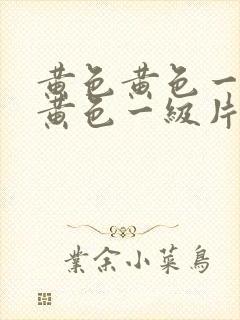 黄色黄色一
黄色一級片
業余小菜鳥